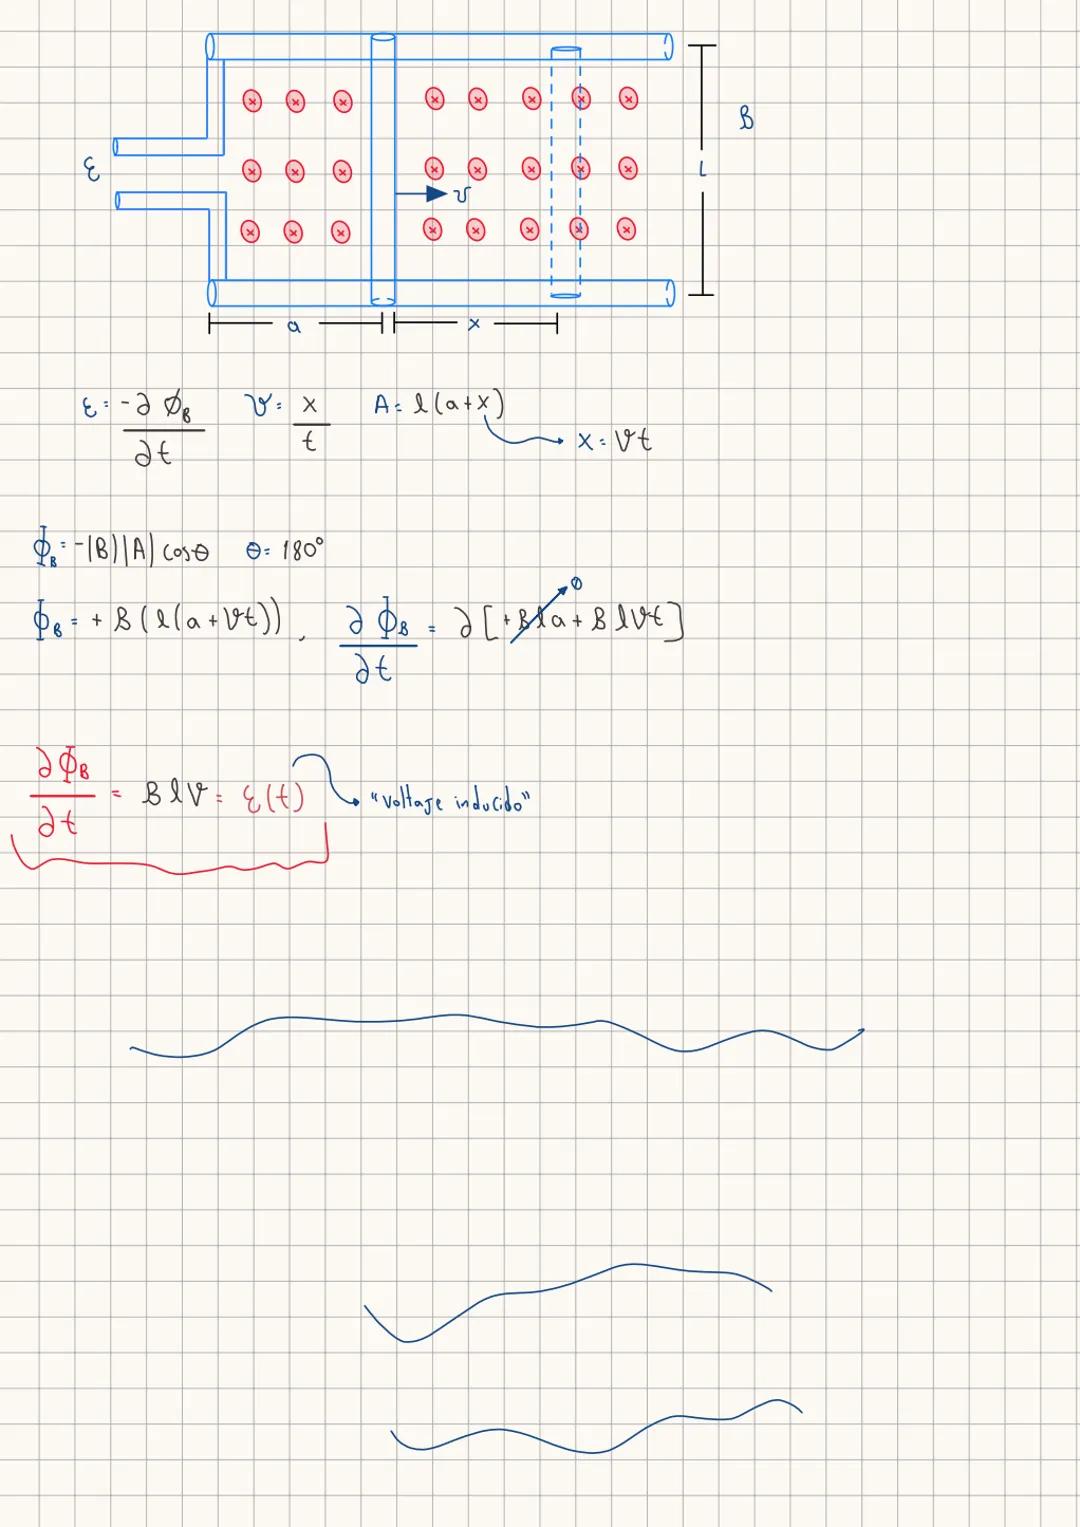 B
ε
L
v
a x
ε = -∂ϕ_B/∂t v = x/t A = l(a+x)
x = vt
Φ_B = -|B||A| cosθ θ = 180°
0
Φ_B = + B(l(a+vt)), ∂Φ_B/∂t = ∂[+Bla + Blvt]
∂Φ_B/∂t = Blv = ε(t) "voltaje inducido"